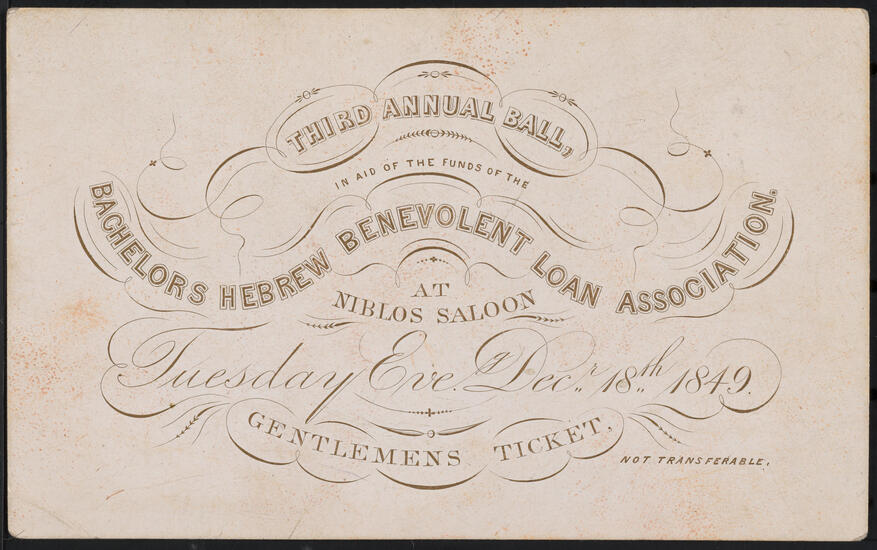 THIRD ANNUAL BALL,
IN AID OF THE FUNDS OF THE
BACHELORS HEBREW BENEVOLENT LOAN ASSOCIATION.
AT
NIBLOS SALOON
Tuesday Eve.g Dec.r 18.th 1849.
GENTLEMENS TICKET.
NOT TRANSFERABLE.